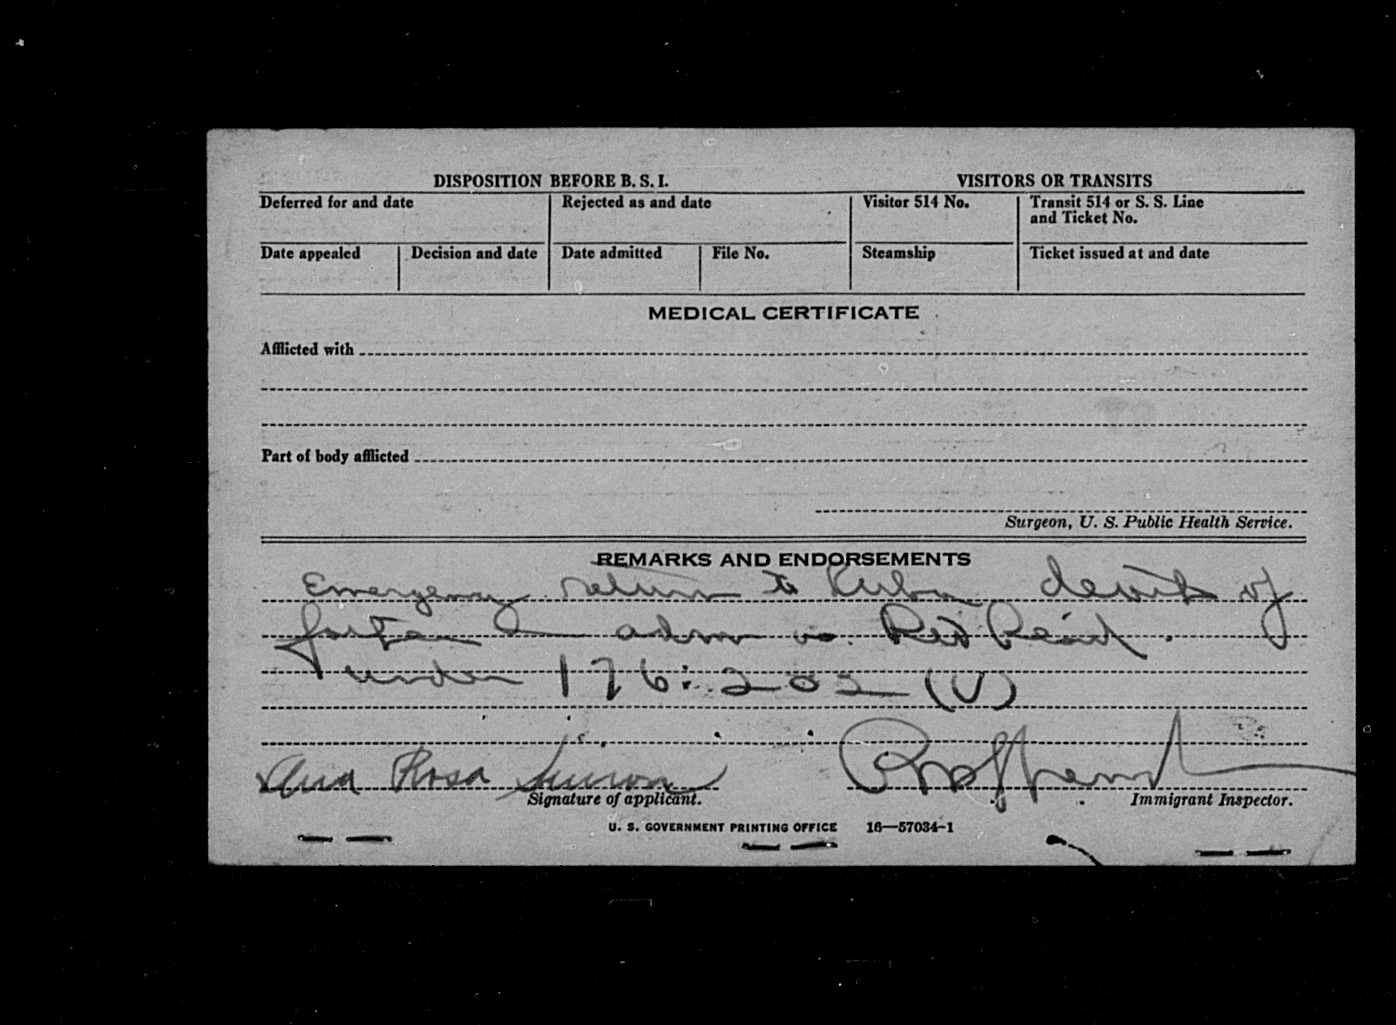 DISPOSITION BEFORE B. S. I.
VISITORS OR TRANSITS
Deferred for and date
Rejected as and date
Visitor 514 No.
Transit 514 or S. S. Line and Ticket No.
Date appealed
Decision and date
Date admitted
File No.
Steamship
Ticket issued at and date
MEDICAL CERTIFICATE
Afflicted with
Part of body afflicted
Surgeon, U. S. Public Health Service.
REMARKS AND ENDORSEMENTS
Emergency return to Cuba of
adm as
under 176:202 (U)
Ana Rosa
Signature of applicant.
Immigrant Inspector.
U. S. GOVERNMENT PRINTING OFFICE 16—57034-1